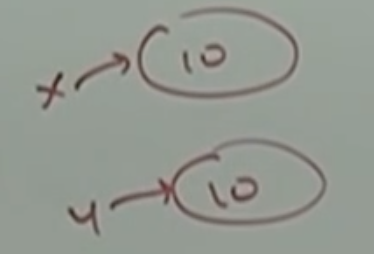 x → 10
y → 10